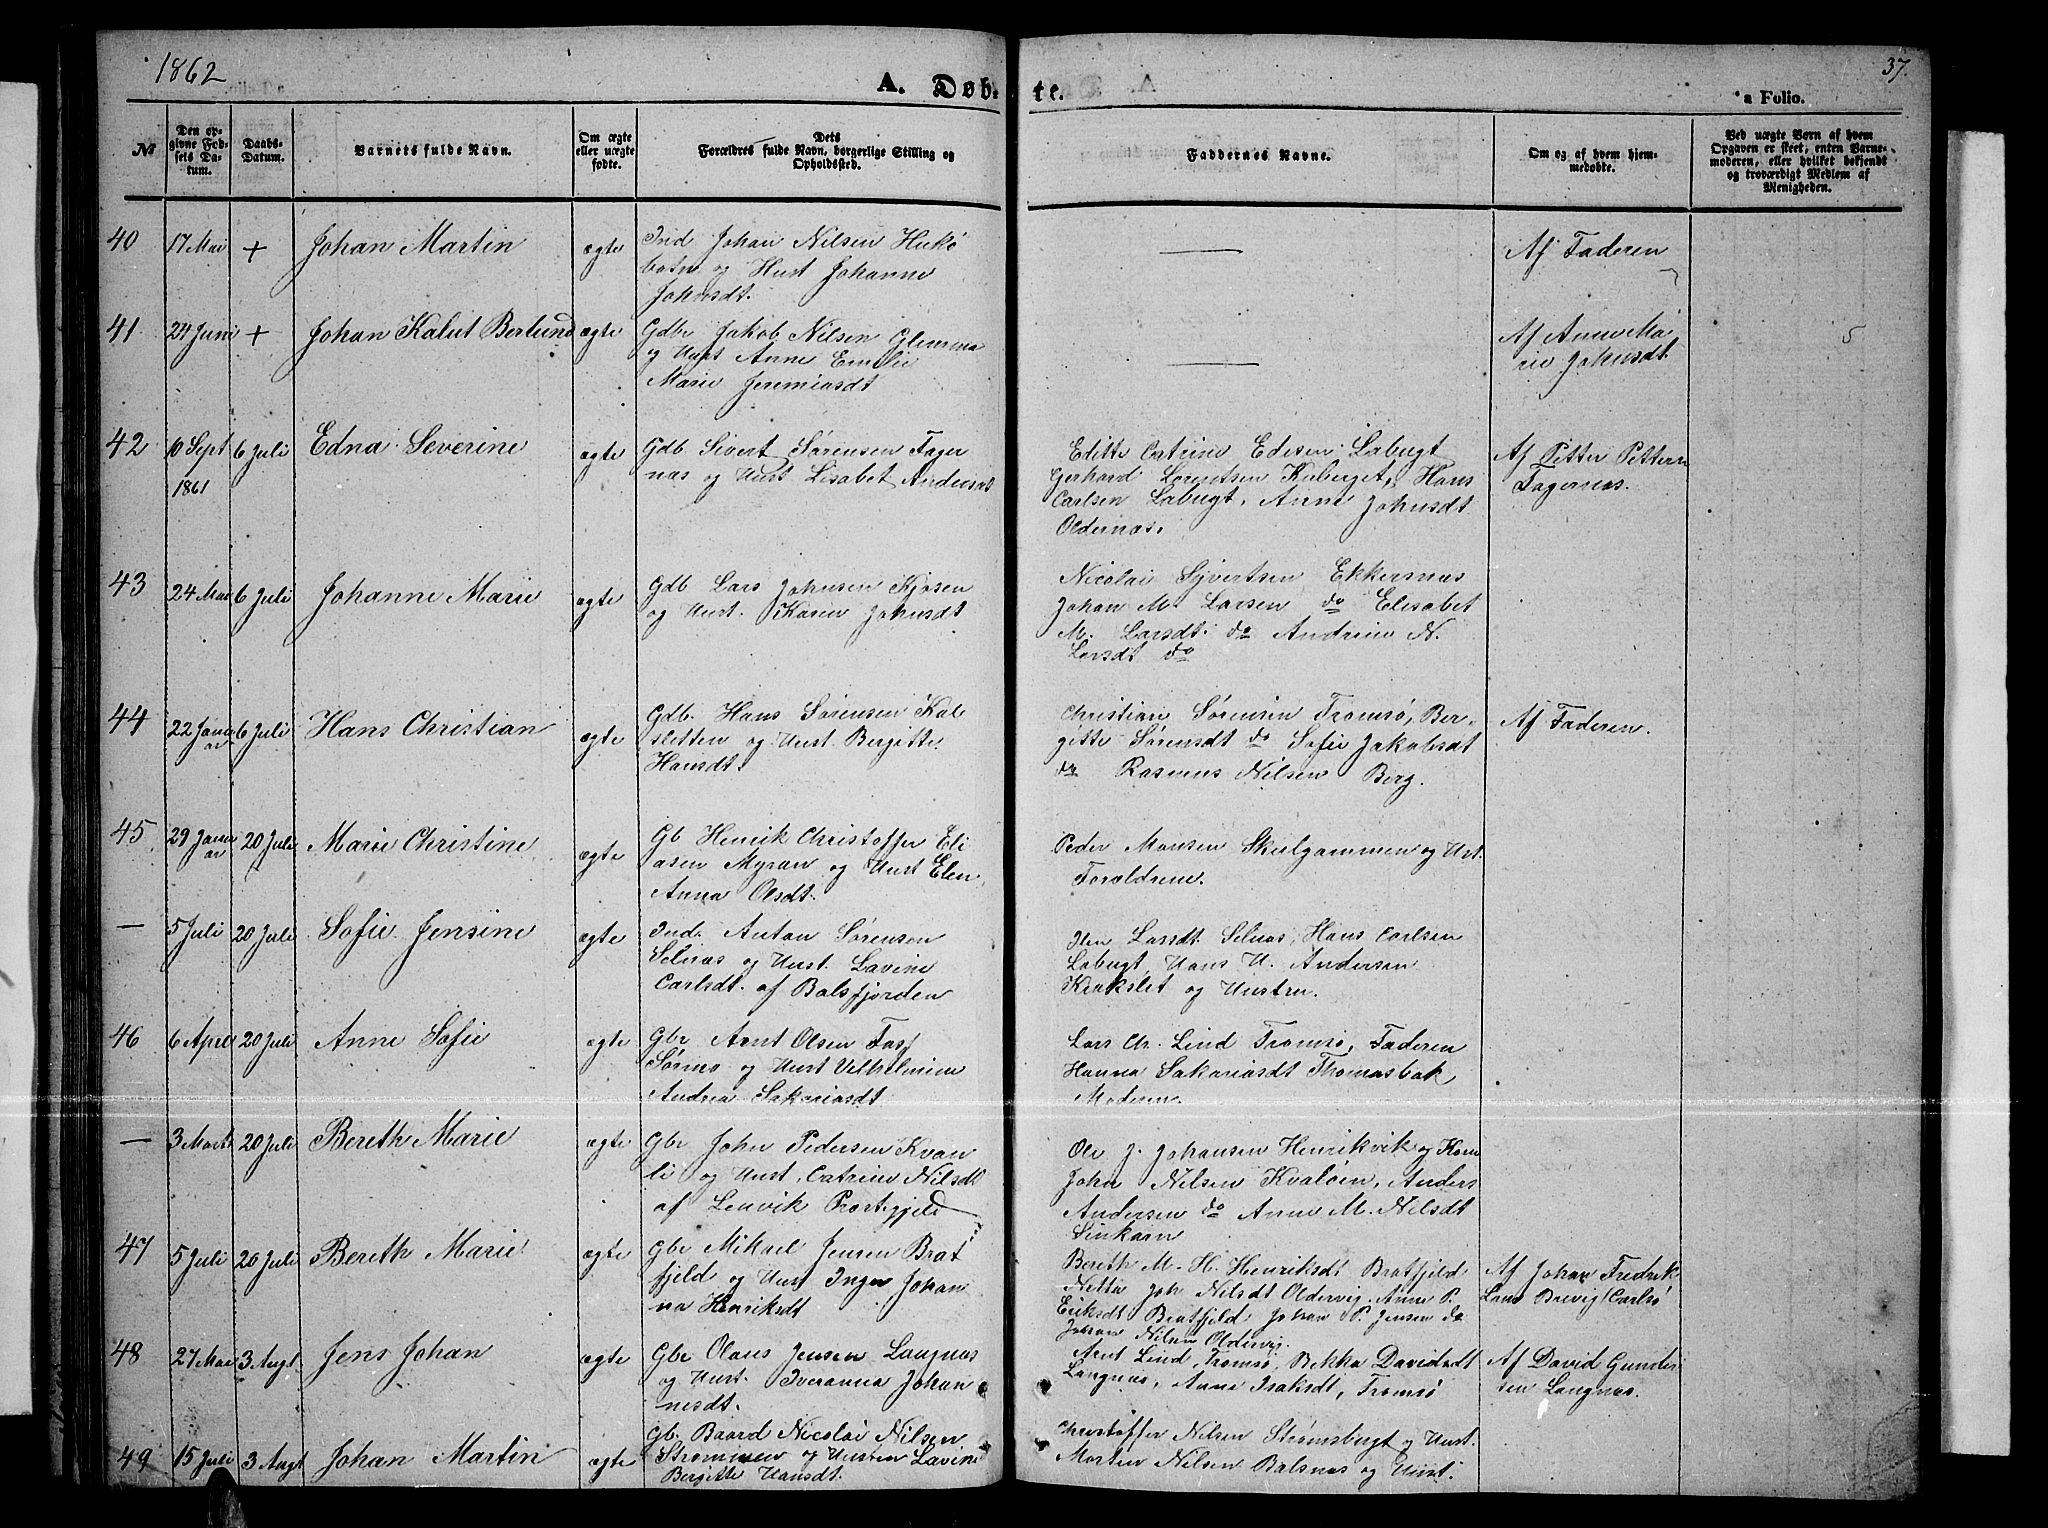 1862
A. Døb-
te.
37.
a Folio.
№
Den op-
givne Fød-
sels Da-
tum.
Daabs-
Datum.
Barnets fulde Navn.
Om ægte
eller uægte
fødte.
Dets
Forældres fulde Navn, borgerlige Stilling og
Opholdssted.
Faddernes Navne.
Om og af hvem hjem-
medøbte.
Ved uægte Børn af hvem
Opgaven er skeet, enten Barne-
moderen, eller hvilket bekjendt
og troværdigt Medlem af
Menigheden.
40
17 Mai
+
Johan Martin
ægte
Ind Johan Nilsen
botn og Hust Johanne
Johnsdt.
Af Faderen
41
24 Juni
+
Johan Kalut Berlund
ægte
Gdbr Jakob Nilsen Glimma
og Hust Anne Emilie
Marie Jeremiasdt
Af Anne Ma
rie Johnsdt
5
42
10 Sept
1861
6 Juli
Edna Severine
ægte
Gdb Sivert Sørensen Fager
nas og Hust Lisabet Andersdt
Editte Catrine Edisen Labugt
Gerhard Lorentsen Kuberget, Hans
Carlsen Labugt, Anne Johnsdt
Oldernas.
Af Petter Pettern
Fagernas.
43
24 Mai
6 Juli
Johanne Marie
ægte
Gdb Lars Johnsen Kjosen
og Hust. Karen Johnsdt
Nicolai Syvertsen Ekkersnas
Johan M. Larsen do Elisabet
M. Larsdt. do Andrine N.
Larsdt do
44
22 Janu
ar
6 Juli
Hans Christian
ægte
Gdb. Hans Sørensen Kob
sletten og Hust. Bergitte
Hansdt.
Christian Sørensen Tromsø, Ber-
gitte Sørensdt do Sofie Jakobsdt
do Rasmus Nilsen Berg.
Af Faderen.
45
29 Janu
ar
20 Juli
Marie Christine
ægte
Gb Henrik Christoffer Eli
asen Myran og Hust Elen
Anna Olsdt.
Peder Monsen Skulgammen og Hst.
Foraldrene.
—
5 Juli
20 Juli
Sofie Jensine
ægte
Ind. Anton Sørensen
Selnas og Hust. Lavine
Carlsdt. af Balsfjorden
Larsdt. Selnas, Hans Carlsen
Labugt, Hans U. Andersen
Krakslet og Hustru.
46
6 April
20 Juli
Anne Sofie
ægte
Gbr Arnt Olsen
Sørmo og Hust Vilhelmine
Andrea Sakariasdt
Lars Chr. Lind Tromsø, Faderen
Hanna Sakariasdt Thomasbak
Moderen.
—
3 Marts
20 Juli
Bereth Marie
ægte
Gbr John Pedersen Kvan
li og Hust, Catrine Nilsdt
af Lenvik Prostigjeld
Ole J. Johansen Henrikvik og Kone
John Nilsen Kvaløen, Anders
Andersen do Anne M. Nilsdt
Sinkarn
47
5 Juli
20 Juli
Bereth Marie
ægte
Gbr Mikael Jensen Brat
fjeld og Hust Inger Johan
na Henriksdt
Bereth M. H. Henriksdt Bratfjeld
Netta Joh Nilsdt Oldervig. Anne P.
Eriksdt Bratfjeld Johan P. Jensen do
Johan Nilsen Oldervig.
Af Johan Fredrik
Lund Brevig (Carlsø
48
27 Mai
3 Augt
Jens Johan
ægte
Gbr Olaus Jensen Langnas
og Hust. Iveranna Johan
nesdt.
Arnt Lind, Tromsø, Bekka Davidsdt
Langnas, Anne Isaksdt, Tromsø
Af David Gunder
sen Langnas.
49
15 Juli
3 Augt
Johan Martin
ægte
Gb. Baard Nicolai Nilsen
Strømmen og Hustru Lavine
Bergitte Hansdt.
Christoffer Nilsen Strømsbugt og Hust.
Morten Nilsen Balsnas og Hust.